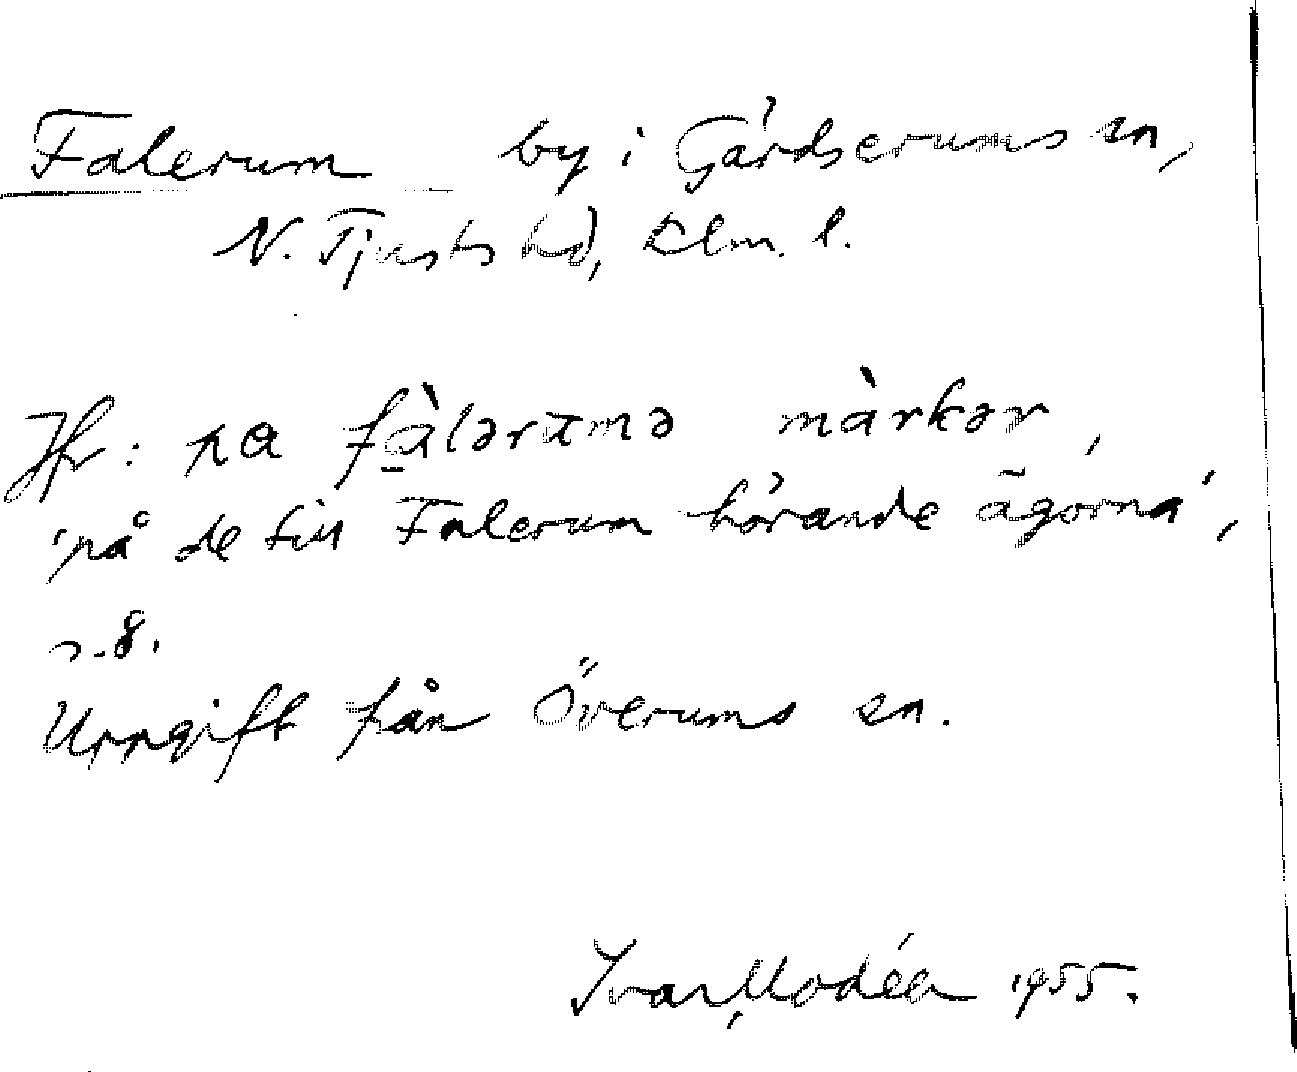 Falerum by i Gårdserums sn,
N. Tjusts hd, Klm. l.
Jfr: pa fàlərumə màrkər,
'på de till Falerum hörande ägorna',
s. 8.
Uppgift från Överums sn.
Ivar Modéer 1955.